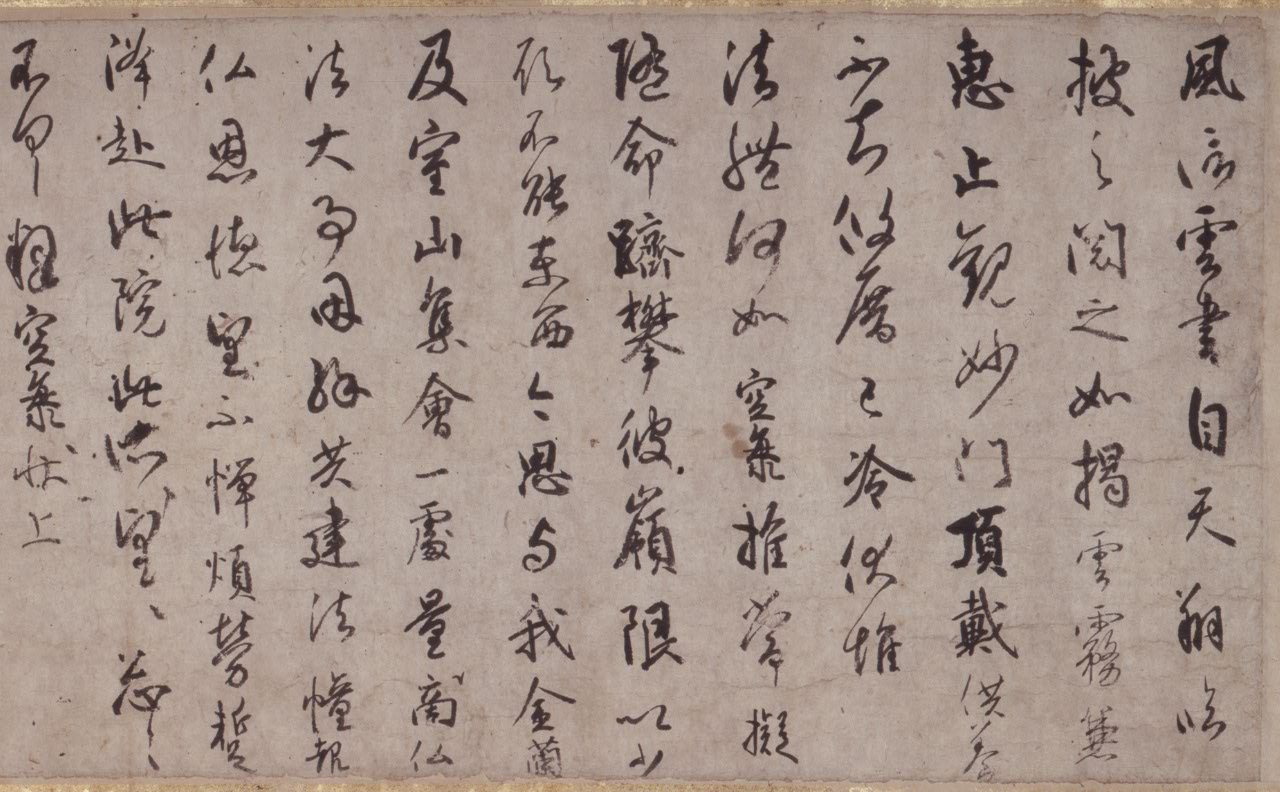 風信雲書自天翔臨
披之閲之如掲雲霧兼
惠止觀妙門頂戴供養
不知攸厝已冷伏惟
法體何如空海推常擬
隨命躋攀彼嶺限以少
願不能東西今思与我金蘭
及室山集會一處量商仏
法大事因縁共建法幢報
仏恩徳望不憚煩勞蹔
降赴此院此所望々々忩々
不具釋空海状上